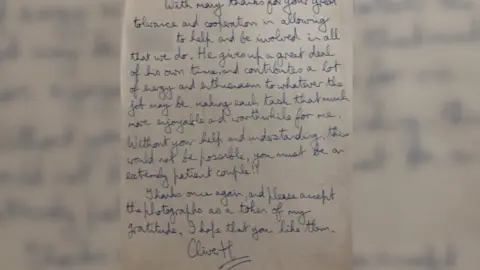 With many thanks for your great
tolerance and cooperation in allowing
to help and be involved in all
that we do. He gives up a great deal
of his own time, and contributes a lot
of energy and enthusiasm to whatever the
job may be, making each task that much
more enjoyable and worthwhile for me.
Without your help and understanding, this
would not be possible, you must be an
extremely patient couple!!
Thanks once again, and please accept
the photographs as a token of my
gratitude. I hope that you like them.
Clive H